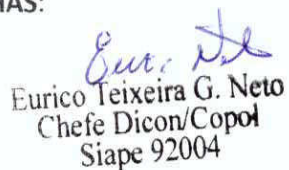 MAS:
Eurico Teixeira G. Neto
Chefe Dicon/Copol
Siape 92004